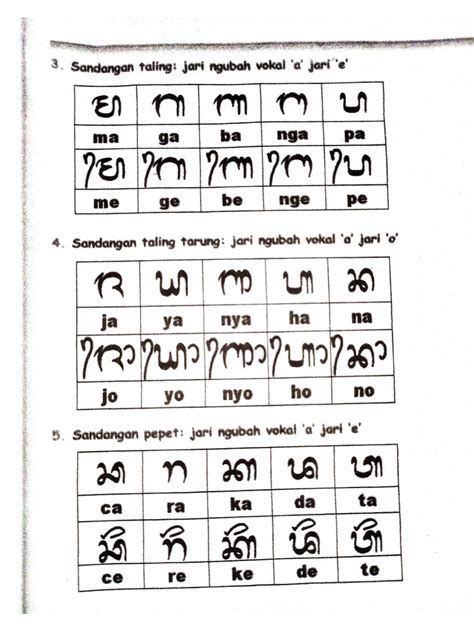 3. Sandangan taling: jari ngubah vokal 'a' jari 'e'
ꦩ ꦒ ꦧ ꦔ ꦥ
ma ga ba nga pa
ꦩꦺ ꦒꦺ ꦧꦺ ꦔꦺ ꦥꦺ
me ge be nge pe
4. Sandangan taling tarung: jari ngubah vokal 'a' jari 'o'
ꦗ ꦪ ꦚ ꦲ ꦤ
ja ya nya ha na
ꦗꦺꦴ ꦪꦺꦴ ꦚꦺꦴ ꦲꦺꦴ ꦤꦺꦴ
jo yo nyo ho no
5. Sandangan pepet: jari ngubah vokal 'a' jari 'e'
ꦕ ꦫ ꦏ ꦢ ꦠ
ca ra ka da ta
ꦕꦼ ꦫꦼ ꦏꦼ ꦢꦼ ꦠꦼ
ce re ke de te